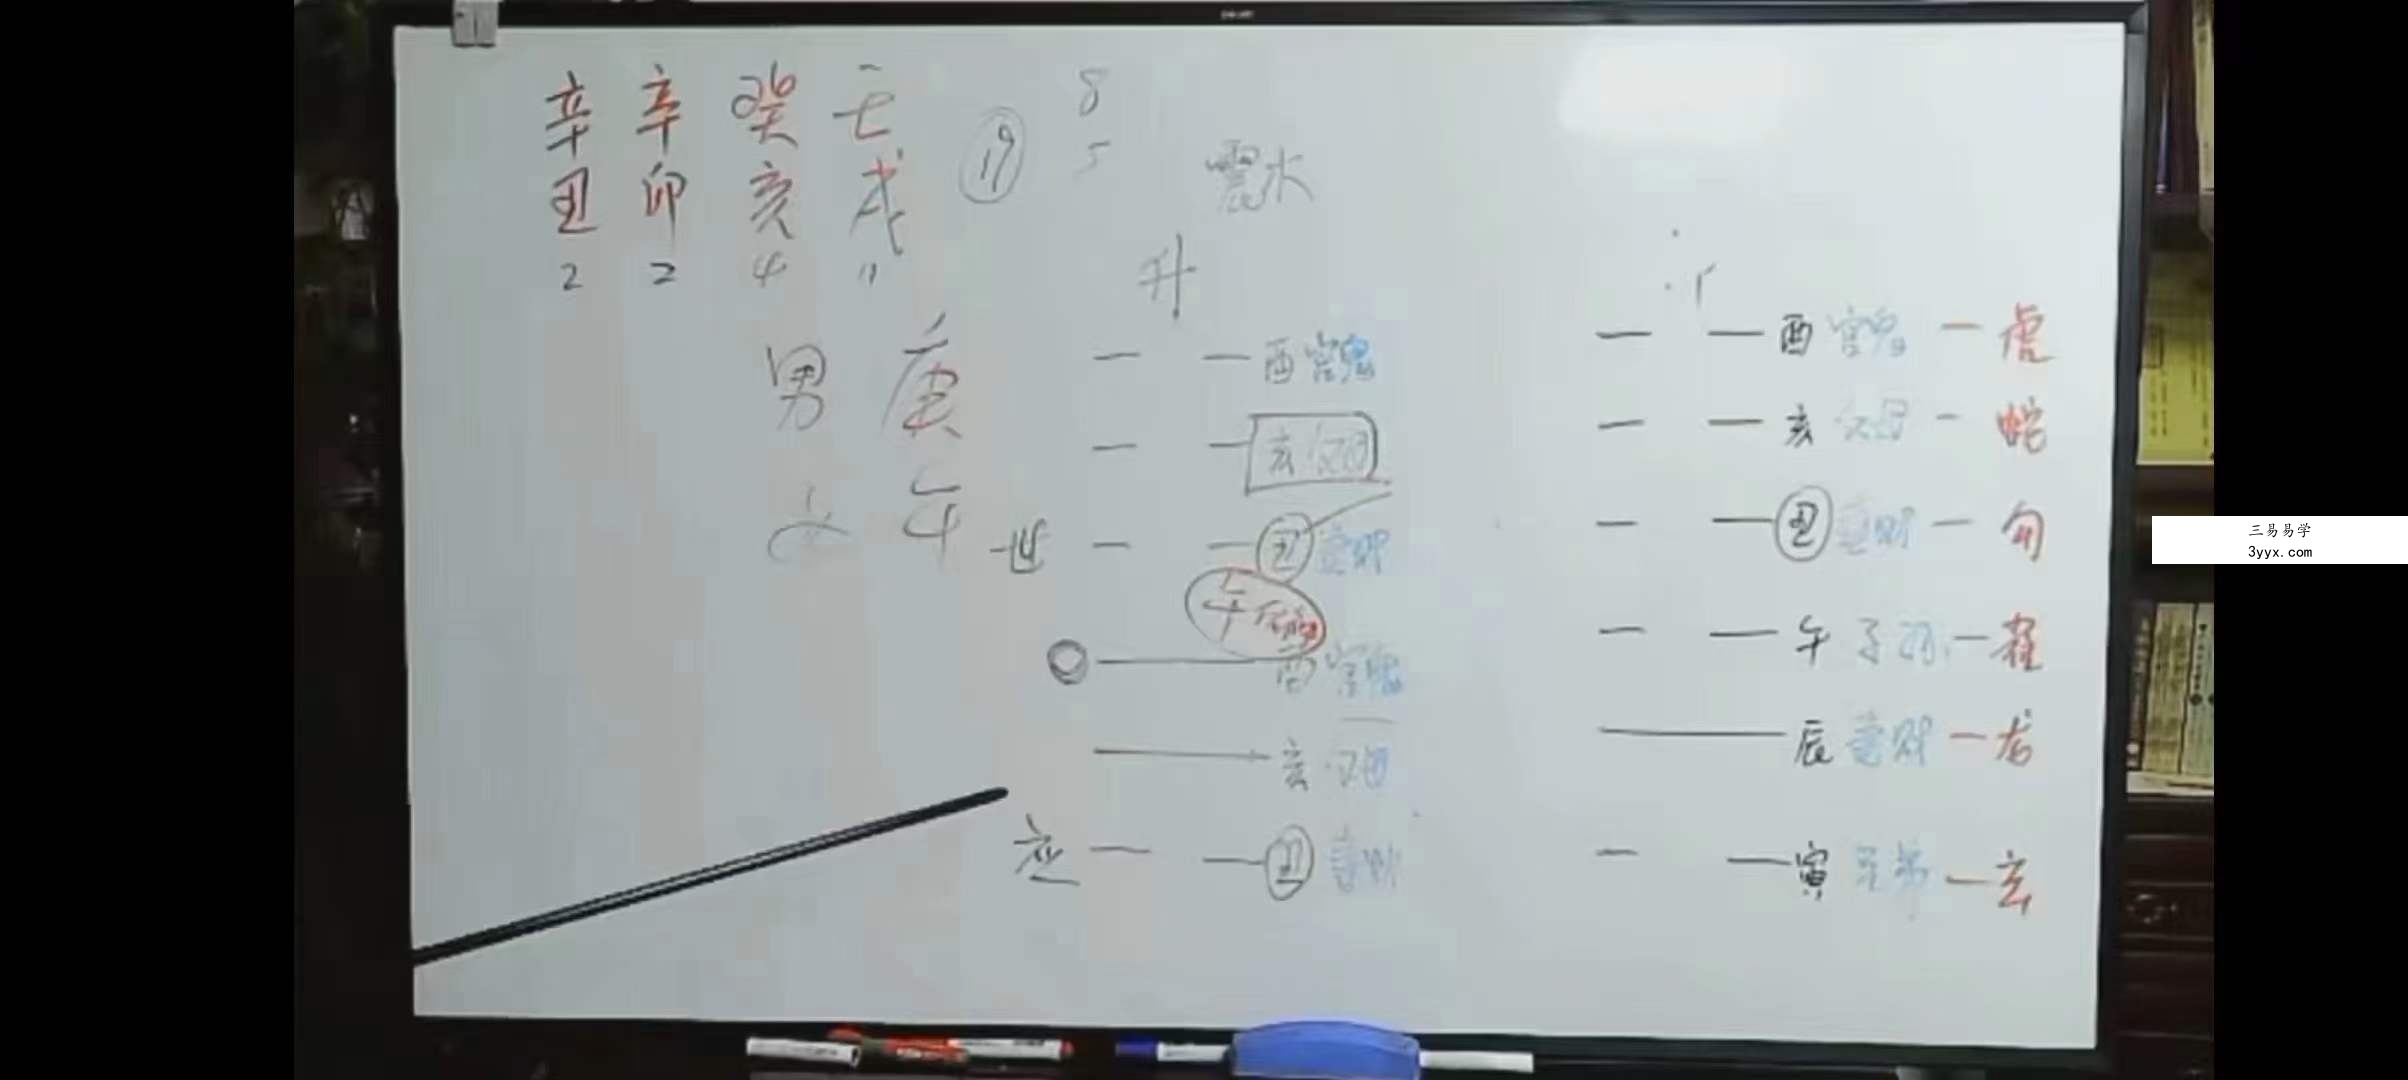 辛 辛 癸 壬
丑 卯 亥 戌
2 2 4 11
男 庚
女 午
19
8
5
震木
升
酉 官鬼
亥 父母
世 丑 妻财
午
酉 官鬼
亥 父母
应 丑 妻财
师
酉 官鬼 虎
亥 父母 蛇
丑 妻财 勾
午 子孙
辰 妻财 龙
寅 兄弟 玄
三易易学
3yyx.com